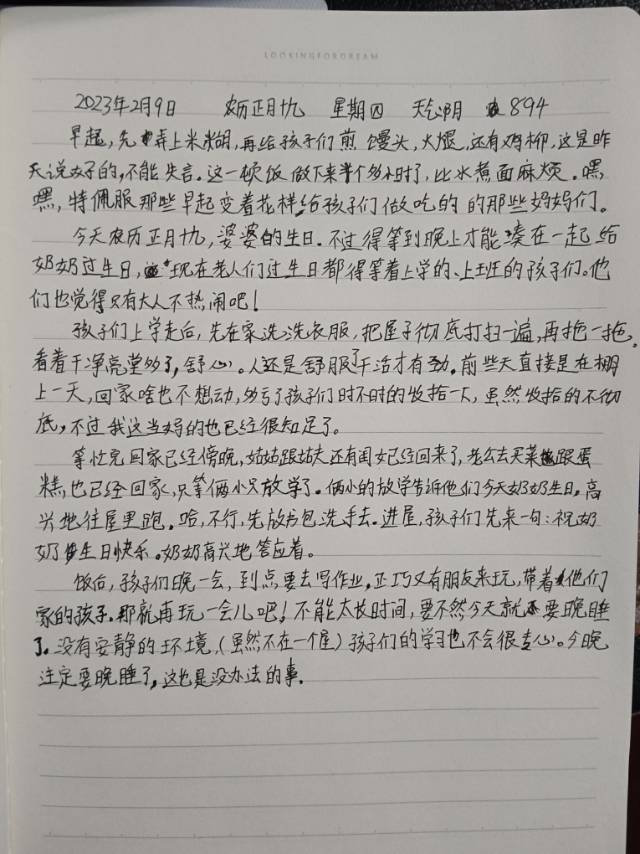 LOOKINGFORDREAM
2023年2月9日 农历正月十九 星期四 天气阴 894
早起，先弄上米糊，再给孩子们煎馒头，火腿，还有鸡柳，这是昨
天说好的，不能失言。这一顿饭做下来半个多小时了，比水煮面麻烦。嘿，
嘿，特佩服那些早起变着花样给孩子们做吃的的那些妈妈们。
今天农历正月十九，婆婆的生日。不过得等到晚上才能凑在一起给
奶奶过生日，现在老人们过生日都得等着上学的、上班的孩子们。他
们也觉得只有大人不热闹吧！
孩子们上学走后，先在家洗洗衣服，把屋子彻底打扫一遍，再拖一拖，
看着干净亮堂多了，舒心。人还是舒服了干活才有劲。前些天直接是在棚
上一天，回家啥也不想动，多亏了孩子们时不时的收拾一下，虽然收拾的不彻
底，不过我这当妈的也已经很知足了。
等忙完回家已经傍晚，姑姑跟姑夫还有闺女已经回来了，老公去买菜跟蛋
糕，也已经回家，只等俩小只放学了。俩小的放学告诉他们今天奶奶生日，高
兴地往屋里跑。哈，不行，先放书包洗手去。进屋，孩子们先来一句：祝奶
奶生日快乐。奶奶高兴地答应着。
饭后，孩子们晚一会，到点要去写作业，正巧又有朋友来玩，带着他们
家的孩子。那就再玩一会儿吧！不能太长时间，要不然今天就要晚睡
了。没有安静的环境，（虽然不在一个屋）孩子们的学习也不会很专心。今晚
注定要晚睡了，这也是没办法的事。